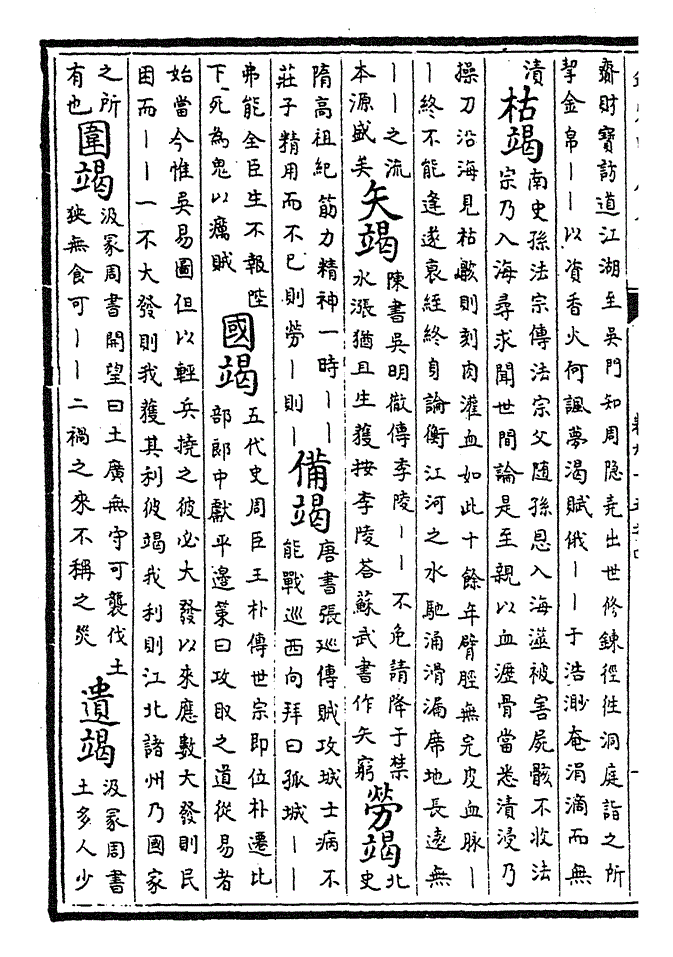 齋財寶訪道江湖至吳門知周隐堯出世修鍊徑往洞庭詣之所
挈金帛丨丨以資香火何諷夢渴賦俄丨丨于浩渺奄涓滴而無
漬
枯竭
南史孫法宗傳法宗父随孫恩入海澨被害屍骸不收法
宗乃入海尋求聞世間論是至親以血瀝骨當悉漬浸乃
操刀沿海見枯骸則刻肉灌血如此十餘年臂脛無完皮血脉丨
丨終不能逢遂衰絰終身論衡江河之水馳涌滑漏席地長遠無
丨丨之流
本源盛矣
矢竭
陳書吳明徹傳李陵丨丨不免請降于禁
水漲猶且生獲按李陵荅蘇武書作矢窮
勞竭
北
史
隋高祖紀筋力精神一時丨丨
莊子精用而不已則勞丨則丨
備竭
唐書張巡傳賊攻城士病不
能戰巡西向拜曰孤城丨丨
弗能全臣生不報陛
下死為鬼以癘賊
國竭
五代史周臣王朴傳世宗即位朴遷比
部郎中獻平邊策曰攻取之道從易者
始當今惟吳易圖但以輕兵撓之彼必大發以來應數大發則民
困而丨丨一不大發則我獲其利彼竭我利則江北諸州乃國家
之所
有也
圍竭
汲冢周書開望曰土廣無守可襲伐土
狹無食可丨丨二禍之來不稱之災
遺竭
汲冢周書
土多人少